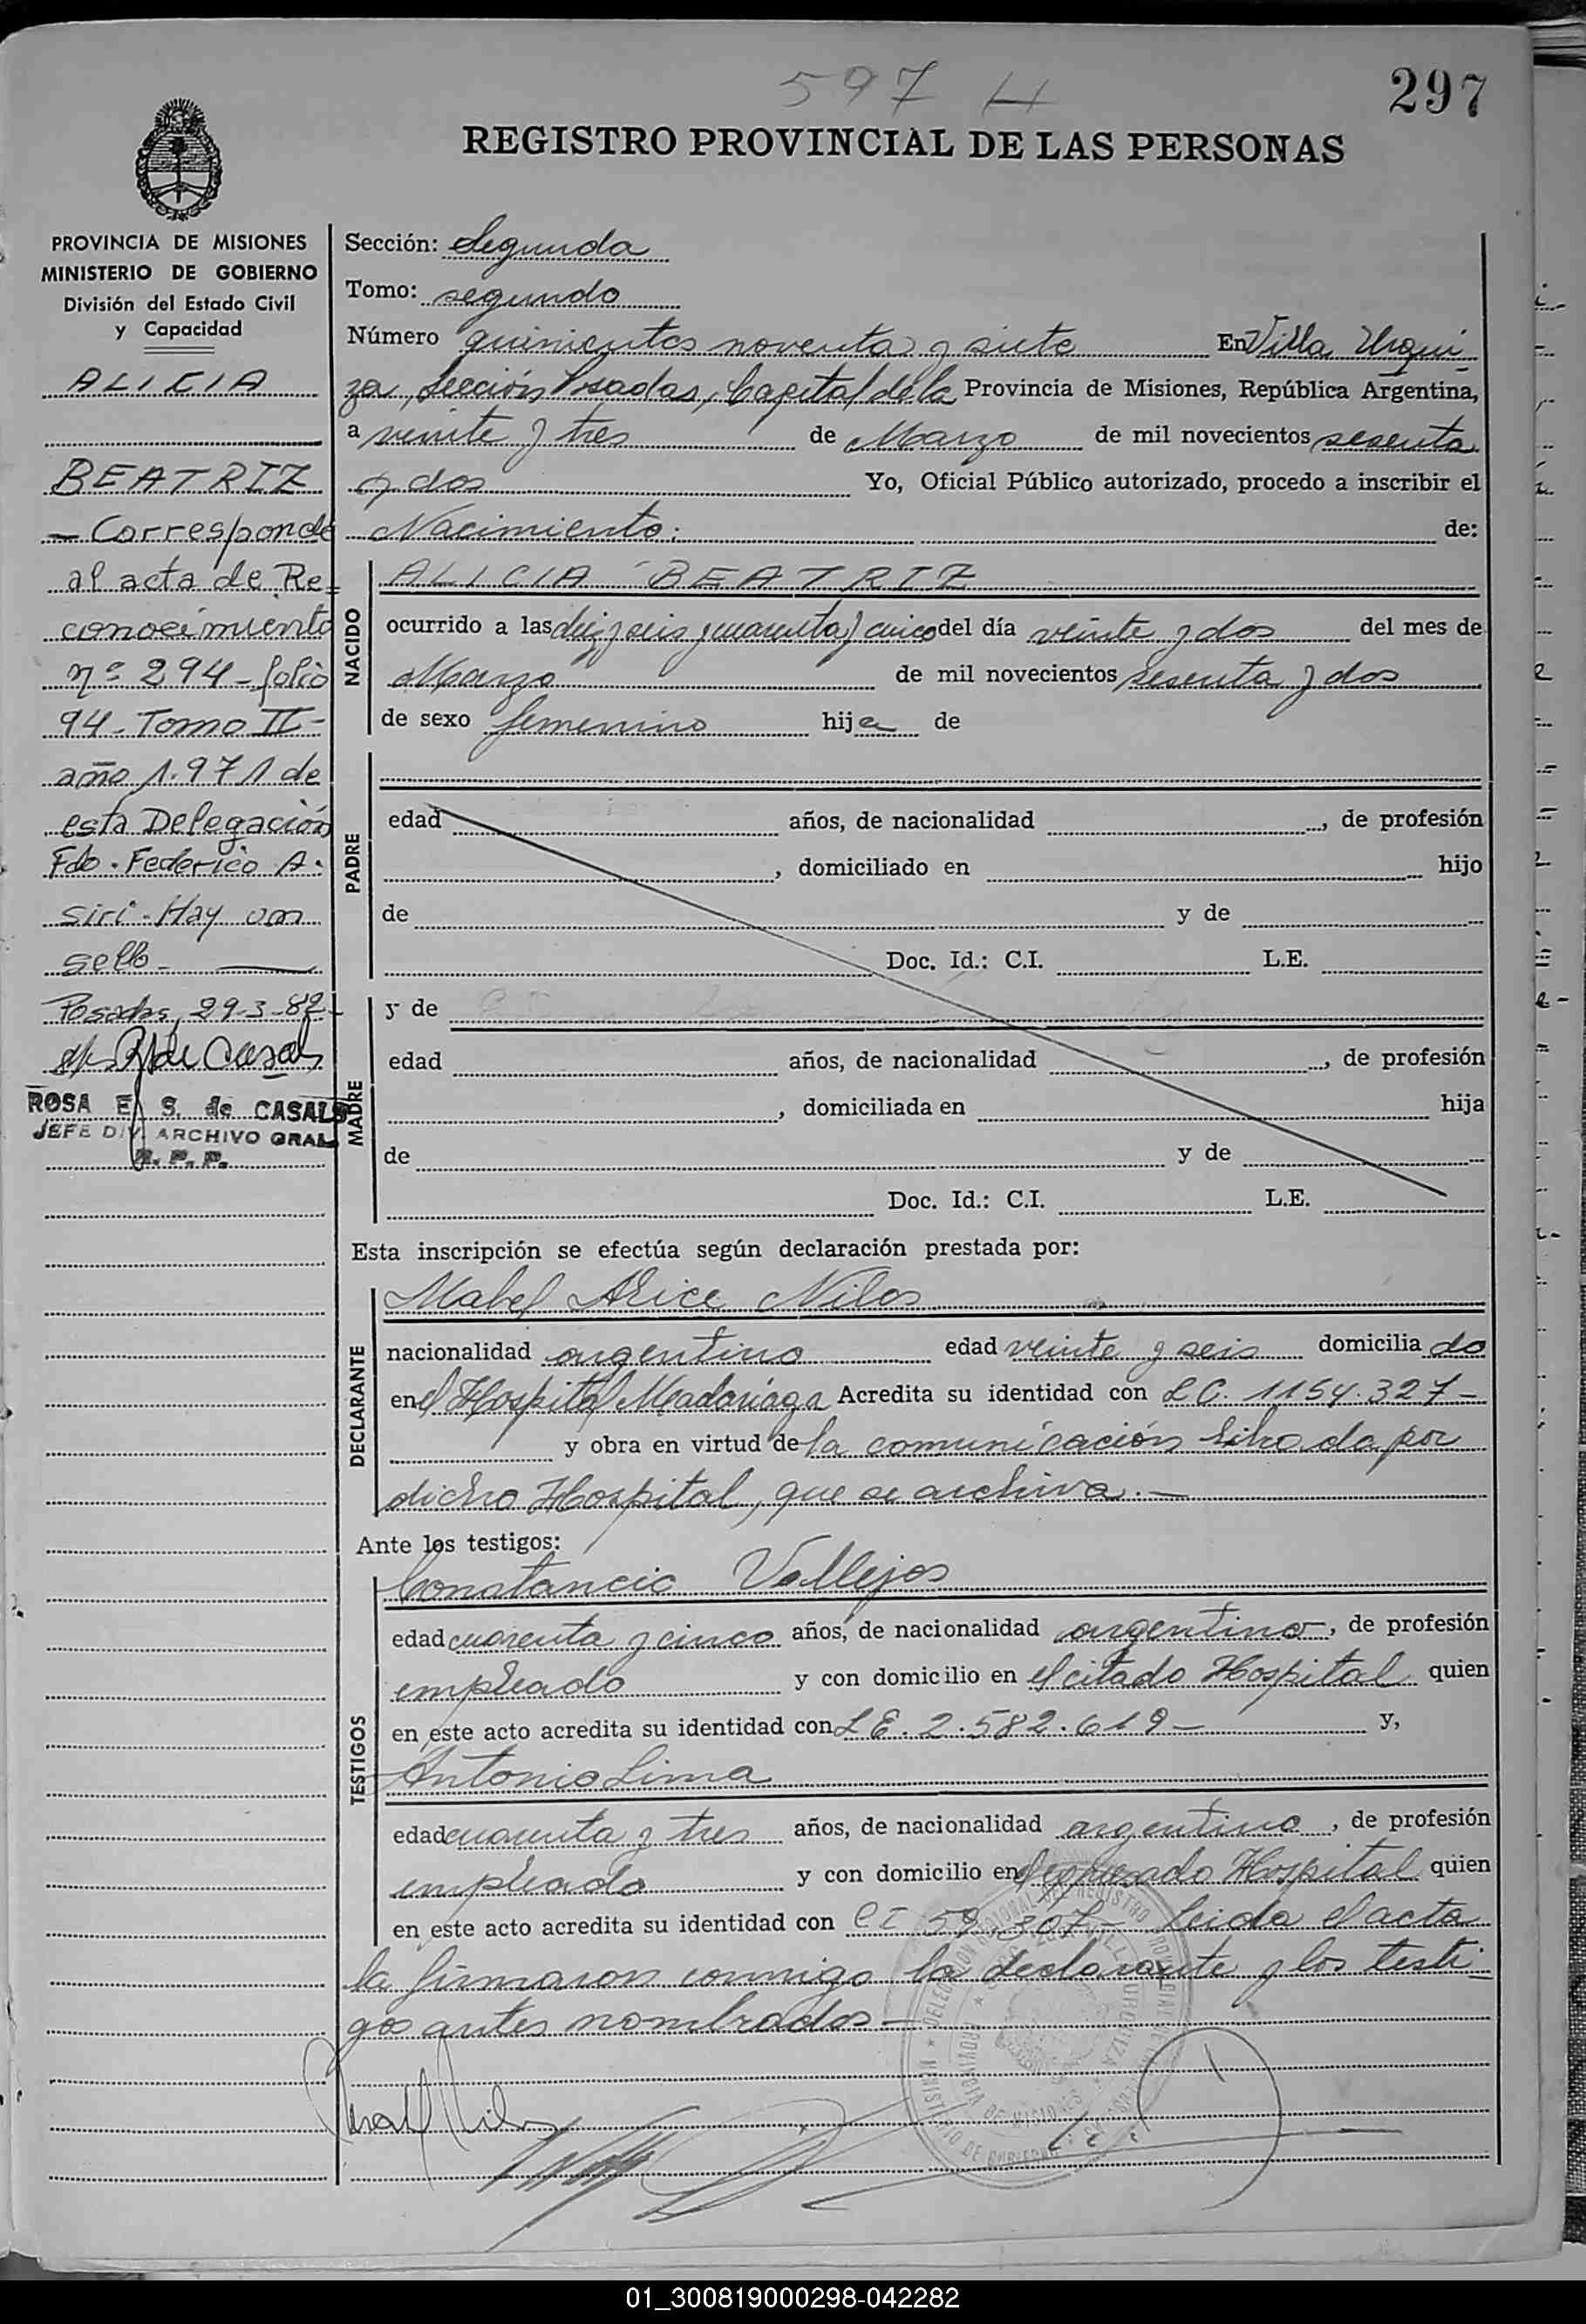 597 H
297
REGISTRO PROVINCIAL DE LAS PERSONAS
PROVINCIA DE MISIONES
MINISTERIO DE GOBIERNO
División del Estado Civil
y Capacidad
ALICIA
BEATRIZ
- Corresponde
al acta de Re=
conocimiento
nº 294 - folio
94 - Tomo II -
año 1.971 de
esta Delegación
Fdo. Federico A.
Siri - Hay un
sello -
Posadas, 29-3-82-
R de Casals
ROSA E. S. de CASALS
JEFE DIV. ARCHIVO GRAL.
R. P. P.
Sección: Segunda
Tomo: segundo
Número quinientos noventa y siete En Villa Urqui
za, Sección Posadas, Capital de la Provincia de Misiones, República Argentina,
a veinte y tres de Marzo de mil novecientos sesenta
y dos Yo, Oficial Público autorizado, procedo a inscribir el
Nacimiento: de:
NACIDO
ALICIA BEATRIZ
ocurrido a las diez y seis y cuarenta y cinco del día veinte y dos del mes de
Marzo de mil novecientos sesenta y dos
de sexo femenino hija de
PADRE
edad años, de nacionalidad , de profesión
, domiciliado en hijo
de y de
Doc. Id.: C.I. L.E.
MADRE
y de
edad años, de nacionalidad , de profesión
, domiciliada en hija
de y de
Doc. Id.: C.I. L.E.
Esta inscripción se efectúa según declaración prestada por:
DECLARANTE
Mabel Alice Nilos
nacionalidad argentino edad veinte y seis domicilia do
en el Hospital Madariaga Acredita su identidad con L C. 1154.327-
y obra en virtud de la comunicación librada por
dicho Hospital, que se archiva.-
Ante los testigos:
TESTIGOS
Constancio Vallejos
edad cuarenta y cinco años, de nacionalidad argentino, de profesión
empleado y con domicilio en el citado Hospital quien
en este acto acredita su identidad con L E. 2.582.619- y,
Antonio Lima
edad cuarenta y tres años, de nacionalidad argentino, de profesión
empleado y con domicilio en el expresado Hospital quien
en este acto acredita su identidad con C I 59.307- Leida el acta
la firmaron conmigo la declarante y los testi-
gos antes nombrados-
01_300819000298-042282